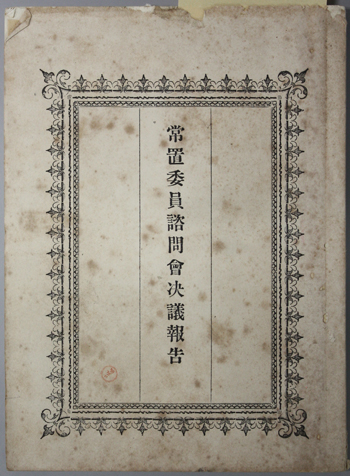 常置委員諮問會决議報告